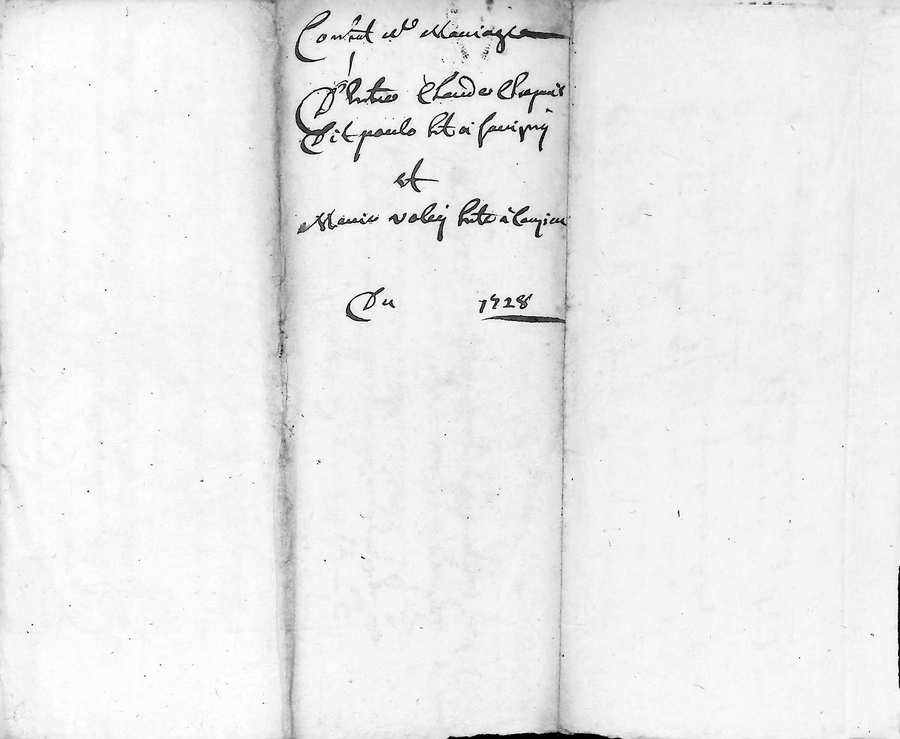 Contrat de Mariage
D'Entre Claude Chapuis
Dit paulo ht a savigny
et
Marie valey hte à
Du 1728